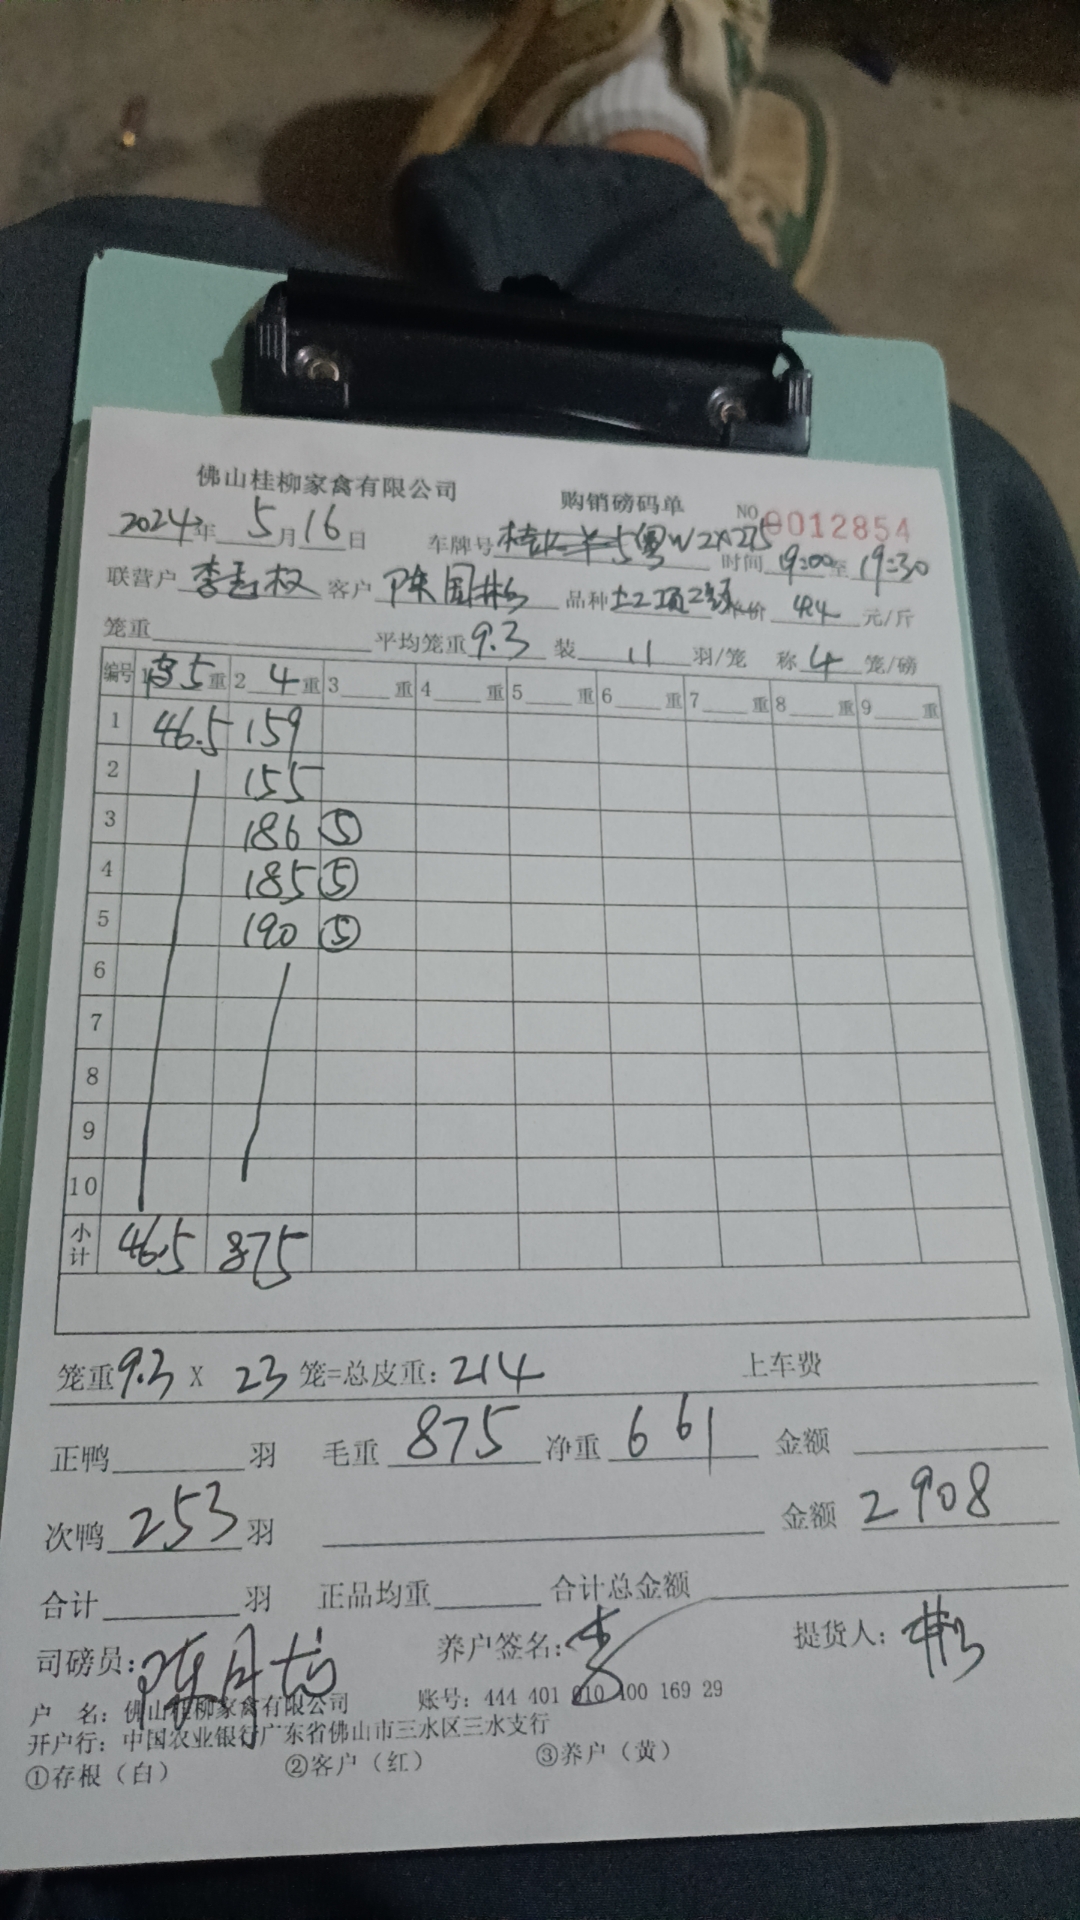 佛山桂柳家禽有限公司 购销磅码单 NO 0012854
2024年 5月16日 车牌号 粤W2X275 时间 19:00至 19:30
联营户 李 权 客户 陈国彬 品种 土2项2 单价 4.4 元/斤
笼重 平均笼重 9.3 装 11 羽/笼 称 4 笼/磅
编号 1 空5 重 2 4 重 3 重 4 重 5 重 6 重 7 重 8 重 9 重
1 46.5 159
2 155
3 186 ⑤
4 185 ⑤
5 190 ⑤
6
7
8
9
10
小计 46.5 875
笼重 9.3 X 23 笼=总皮重: 214 上车费
正鸭 羽 毛重 875 净重 661 金额
次鸭 253 羽 金额 2908
合计 羽 正品均重 合计总金额
司磅员: 陈月 养户签名: 李 提货人: 彬
户 名: 佛山桂柳家禽有限公司 账号: 444 401 010 400 169 29
开户行: 中国农业银行广东省佛山市三水区三水支行
①存根（白） ②客户（红） ③养户（黄）